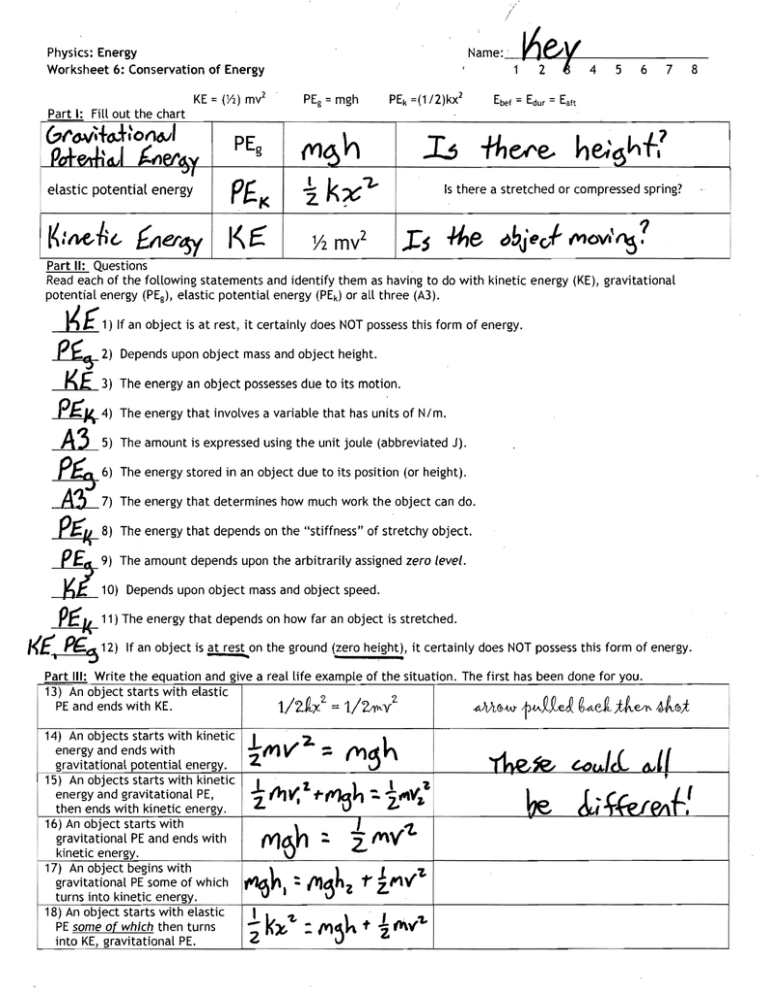 Physics: Energy
Name: Key
Worksheet 6: Conservation of Energy
1 2 3 4 5 6 7 8
KE = (½) mv² PEg = mgh PEk =(1/2)kx² Ebef = Edur = Eaft
Part I: Fill out the chart
Gravitational Potential Energy PEg mgh Is there height?
elastic potential energy PEK ½ kx² Is there a stretched or compressed spring?
Kinetic Energy KE ½ mv² Is the object moving?
Part II: Questions
Read each of the following statements and identify them as having to do with kinetic energy (KE), gravitational
potential energy (PEg), elastic potential energy (PEk) or all three (A3).
KE 1) If an object is at rest, it certainly does NOT possess this form of energy.
PEg 2) Depends upon object mass and object height.
KE 3) The energy an object possesses due to its motion.
PEK 4) The energy that involves a variable that has units of N/m.
A3 5) The amount is expressed using the unit joule (abbreviated J).
PEg 6) The energy stored in an object due to its position (or height).
A3 7) The energy that determines how much work the object can do.
PEK 8) The energy that depends on the “stiffness” of stretchy object.
PEg 9) The amount depends upon the arbitrarily assigned zero level.
KE 10) Depends upon object mass and object speed.
PEK 11) The energy that depends on how far an object is stretched.
KE, PEg 12) If an object is at rest on the ground (zero height), it certainly does NOT possess this form of energy.
Part III: Write the equation and give a real life example of the situation. The first has been done for you.
13) An object starts with elastic
PE and ends with KE.
1/2kx² = 1/2mv²
arrow pulled back then shot
14) An objects starts with kinetic
energy and ends with
gravitational potential energy.
½mv² = mgh
These could all
be different!
15) An objects starts with kinetic
energy and gravitational PE,
then ends with kinetic energy.
½mv₁² + mgh = ½mv₂²
16) An object starts with
gravitational PE and ends with
kinetic energy.
mgh = ½mv²
17) An object begins with
gravitational PE some of which
turns into kinetic energy.
mgh₁ = mgh₂ + ½mv²
18) An object starts with elastic
PE some of which then turns
into KE, gravitational PE.
½kx² = mgh + ½mv²